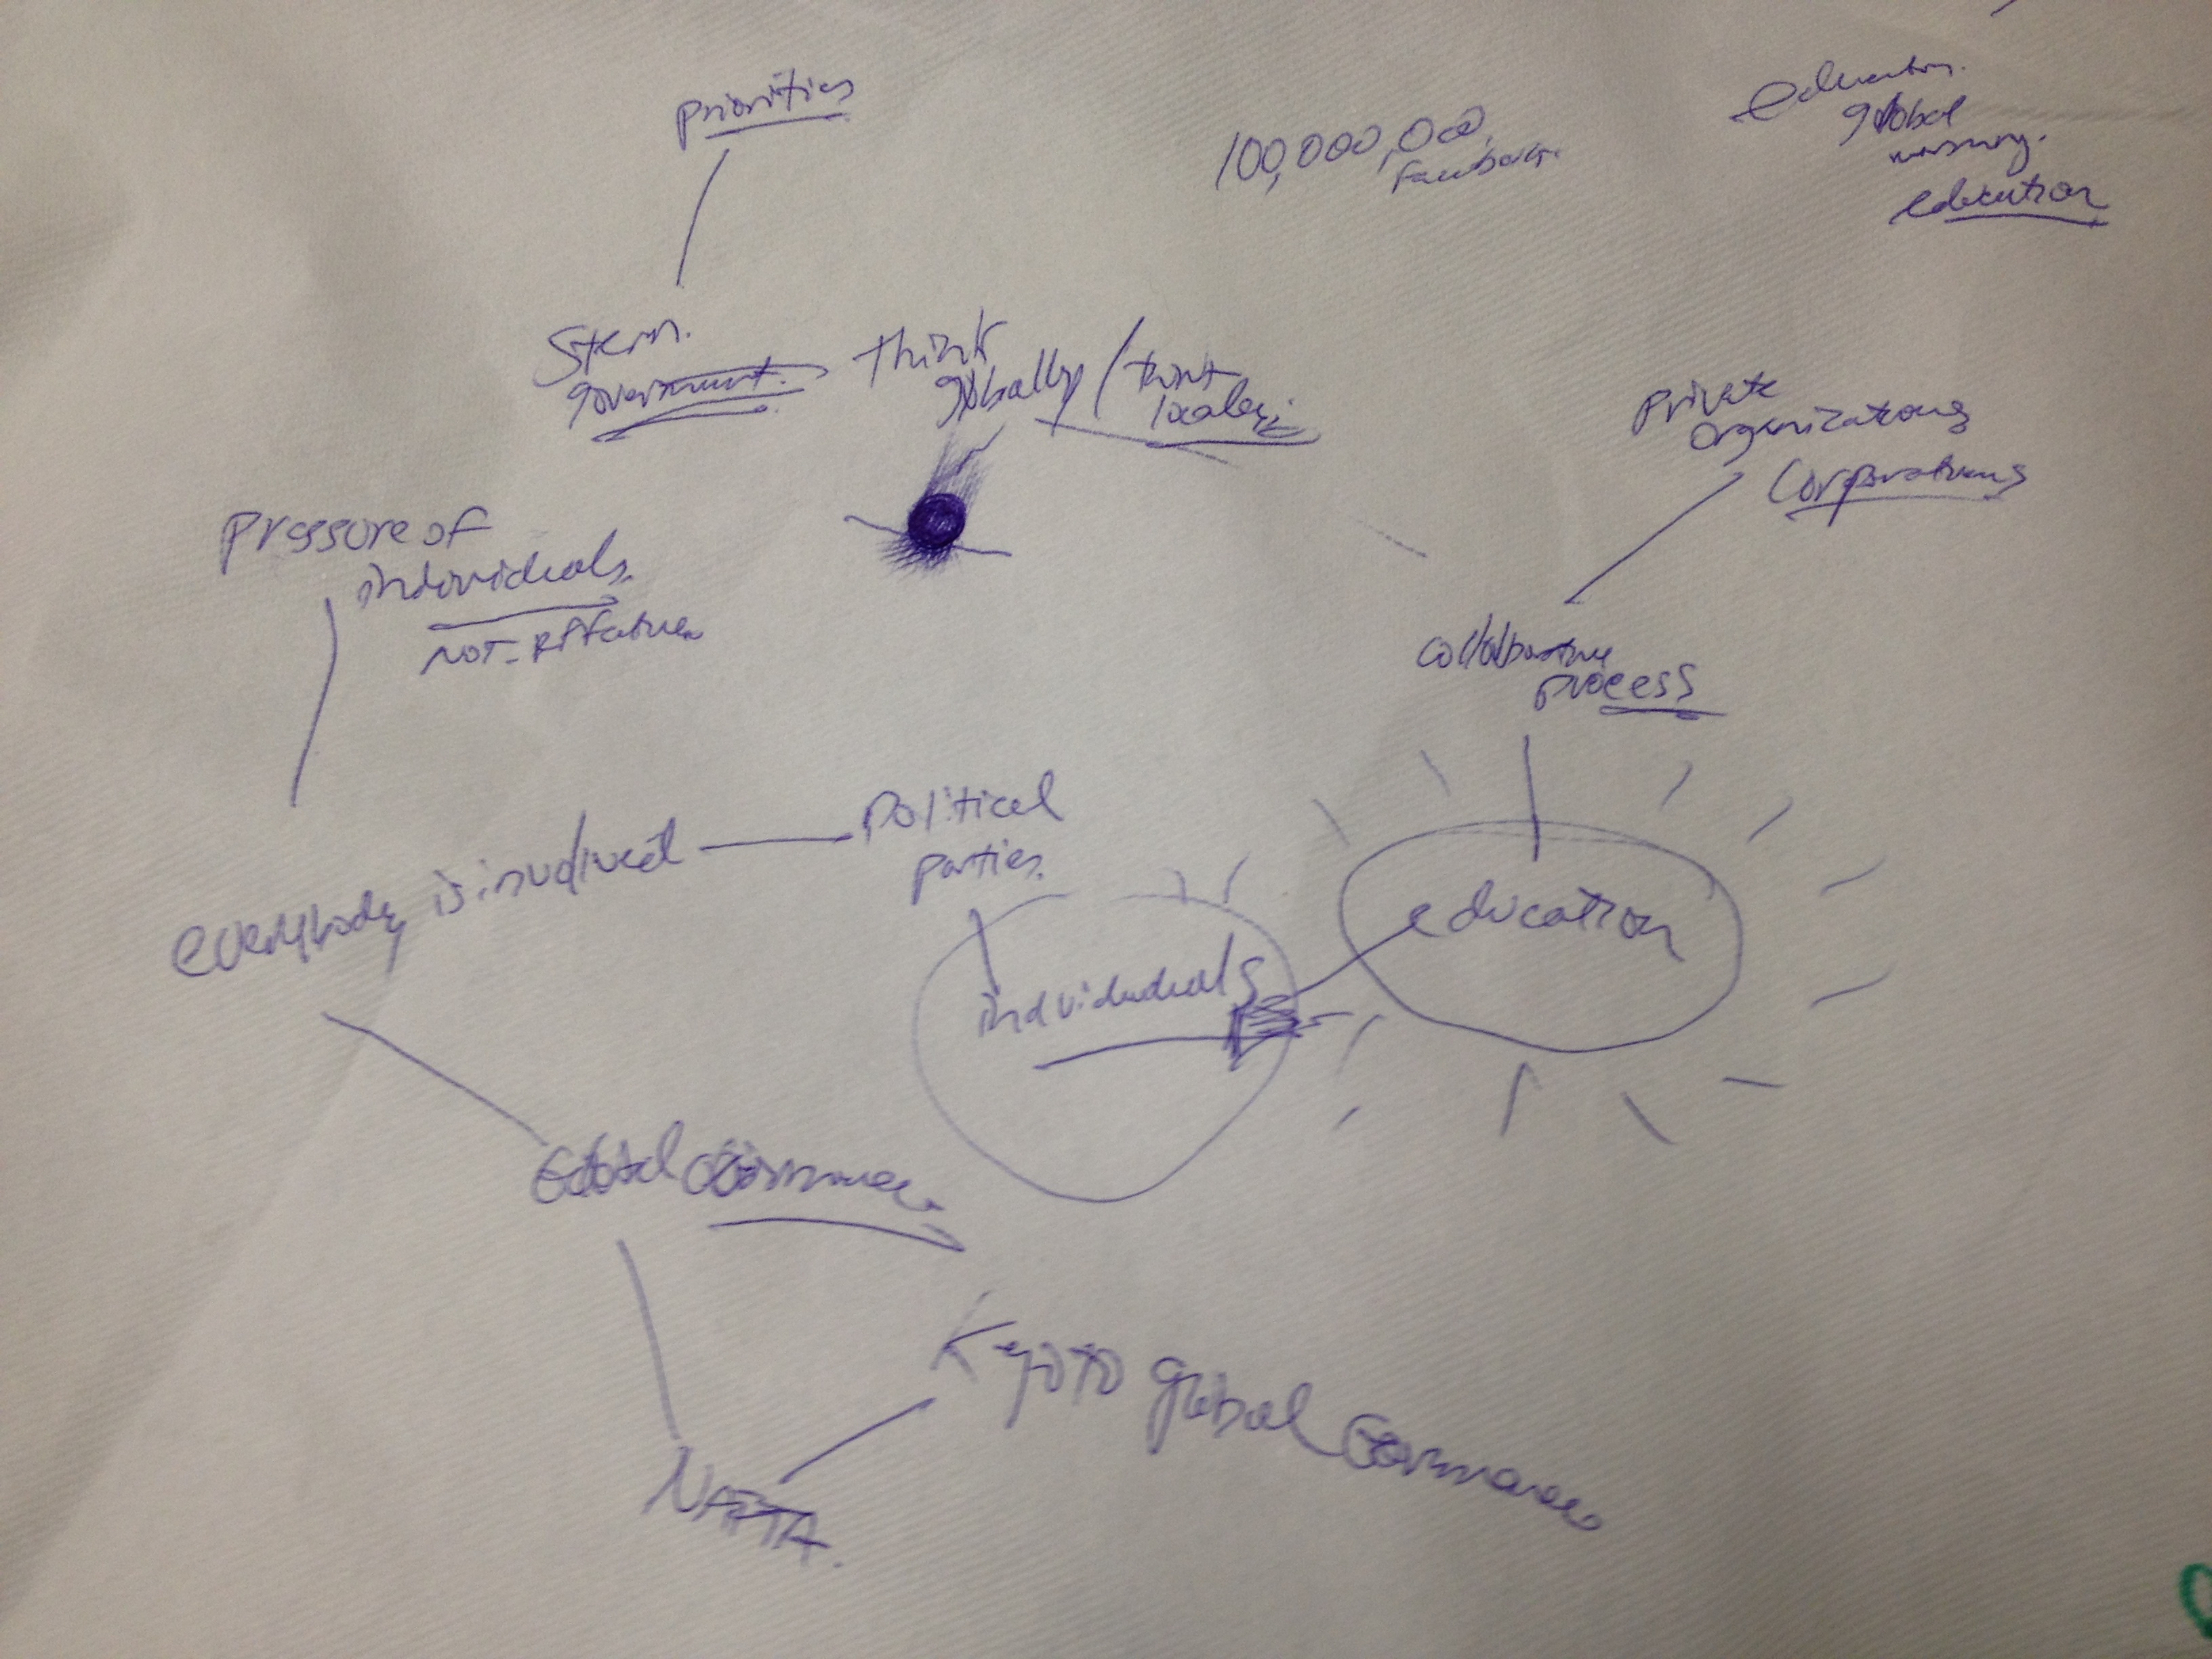 priorities
100,000,000
Facebook.
education.
global
warming.
education
Stern.
government.
Think
globally / think
locally.
private
organizations
corporations
pressure of
individuals.
NOT
collaborative
process
everybody is involved
political
parties.
individuals
education
Global Governance
Kyoto global Governance
NAFTA.